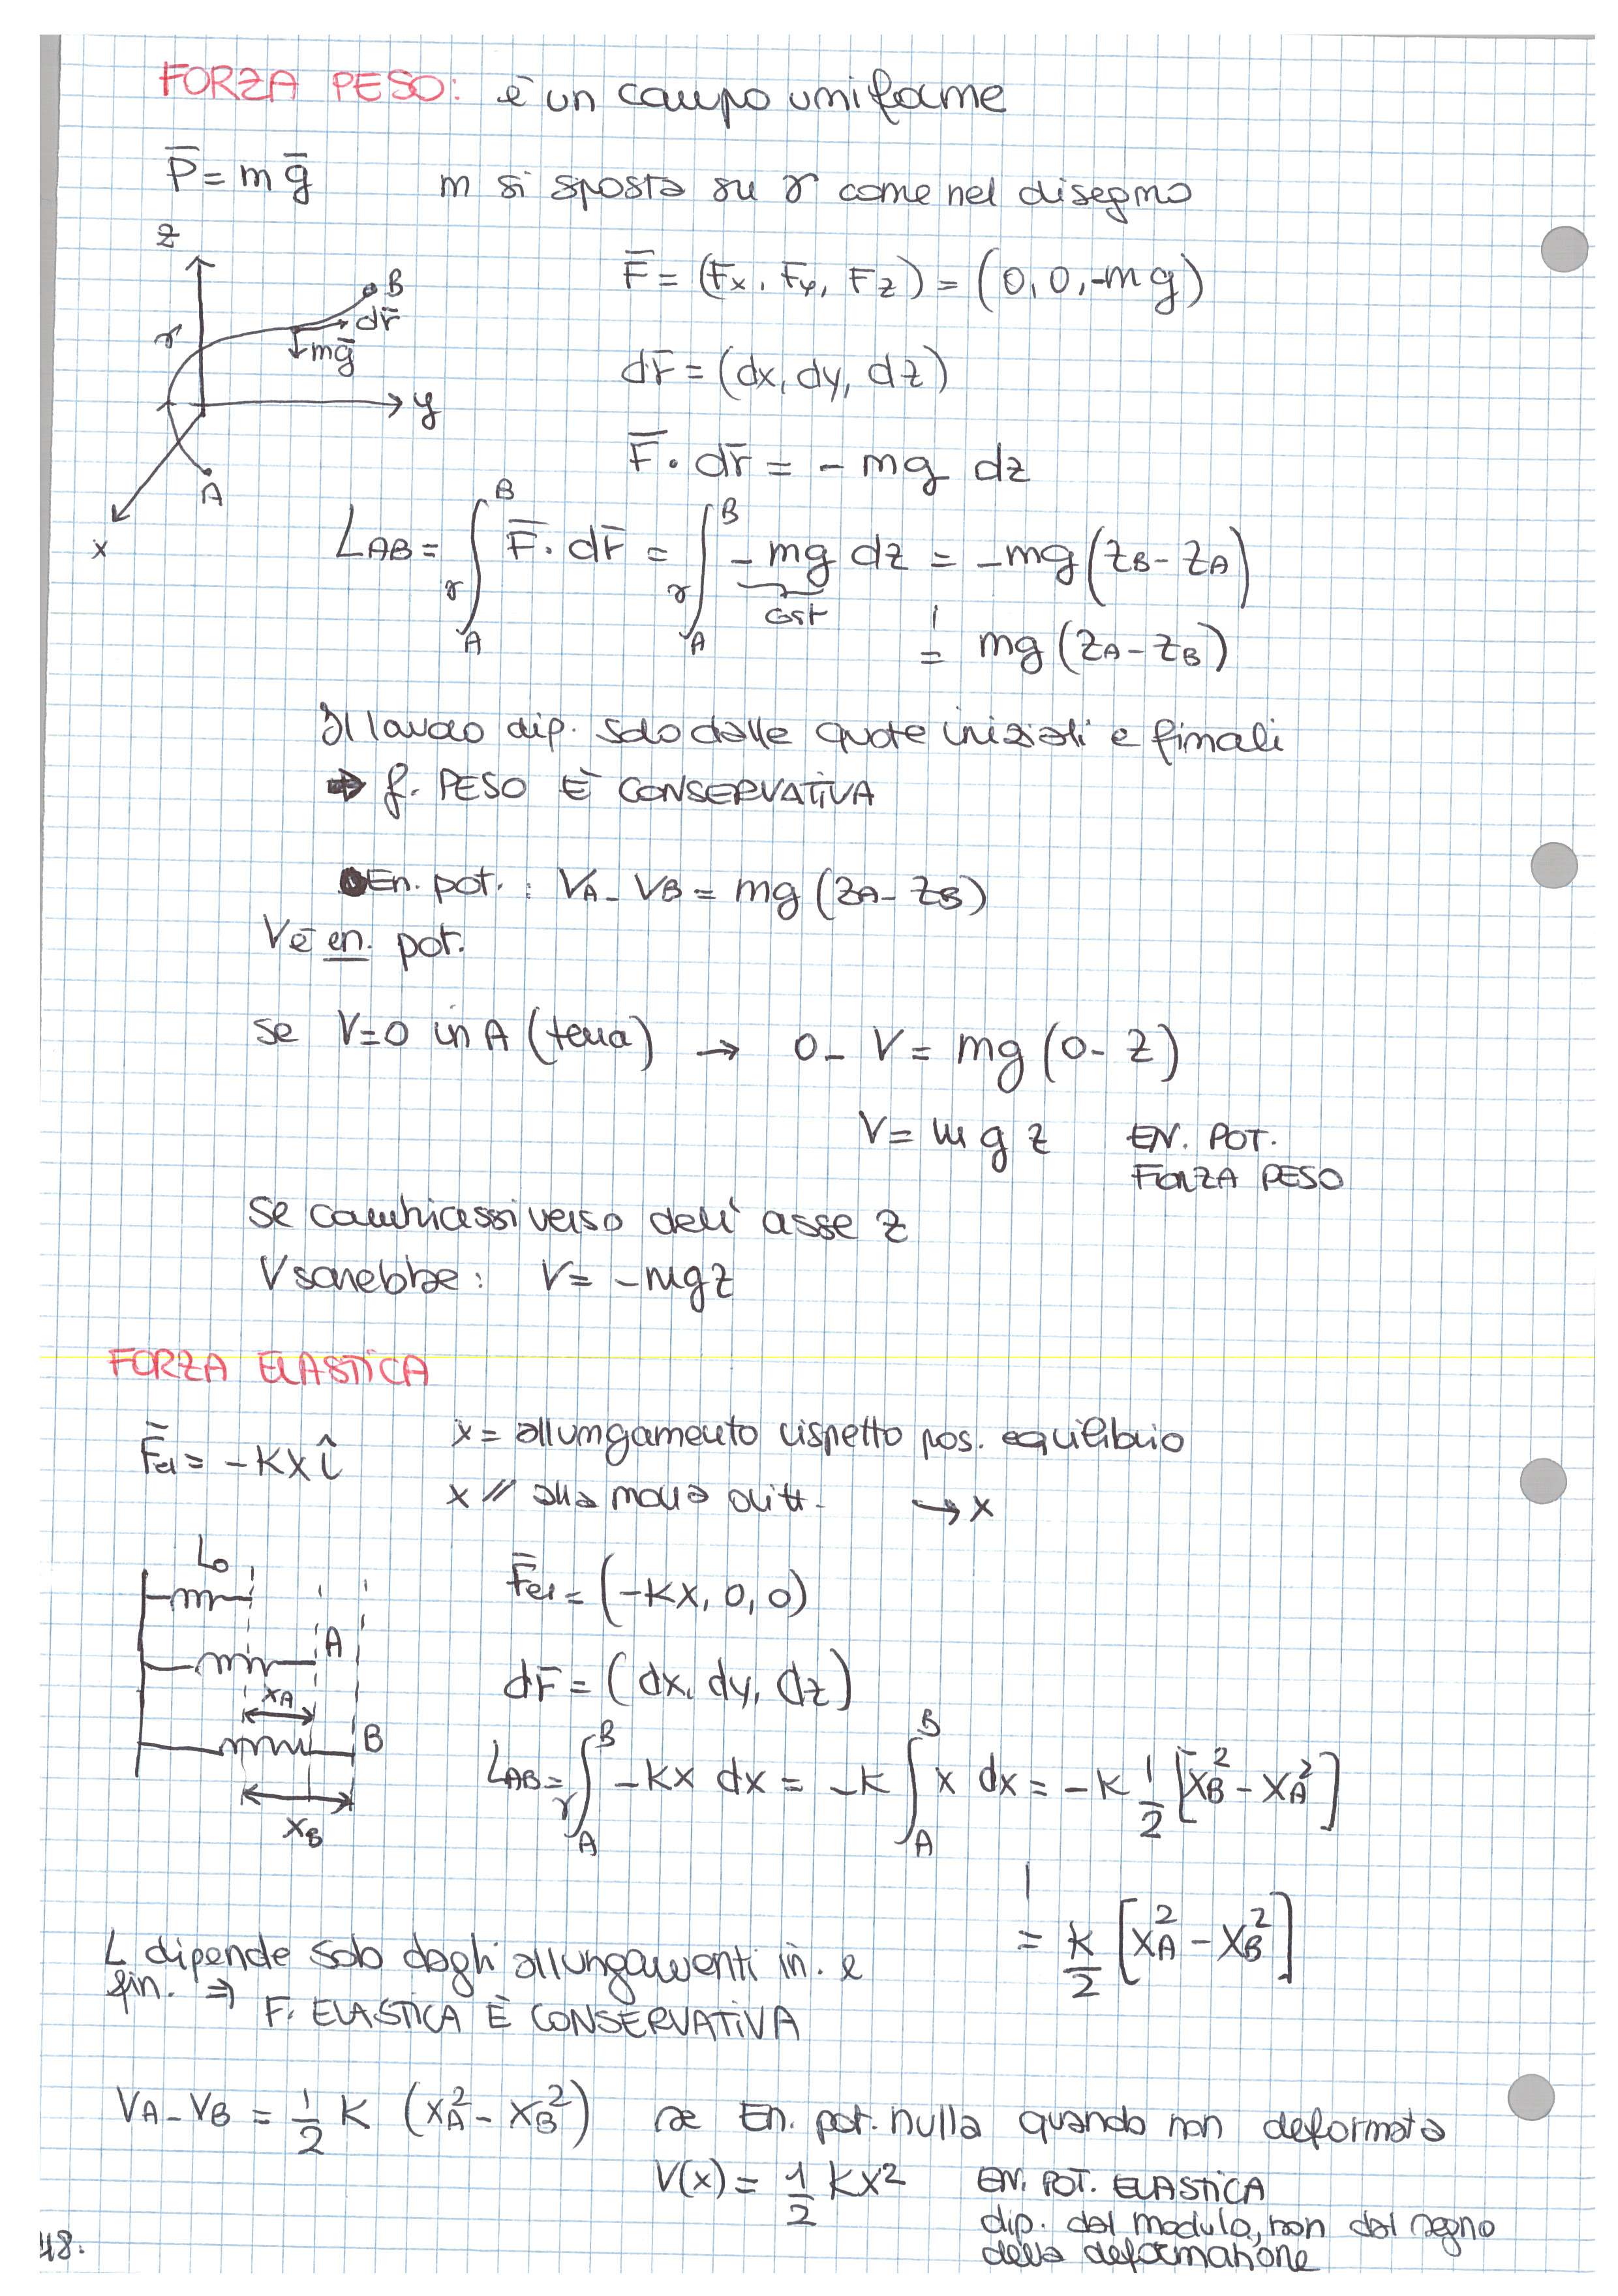 FORZA PESO: è un campo uniforme
P̅ = m g̅ m si sposta su γ come nel disegno
z
B
γ
dr̅
mg̅
y
A
x
F̅ = (Fx, Fy, Fz) = (0, 0, -mg)
dr̅ = (dx, dy, dz)
F̅ · dr̅ = - mg dz
L_AB = ∫_γ A^B F̅ · dr̅ = ∫_γ A^B - mg dz = -mg (z_B - z_A)
cost
= mg (z_A - z_B)
Il lavoro dip. solo dalle quote iniziali e finali
⇒ f. PESO È CONSERVATIVA
En. pot. : V_A - V_B = mg (z_A - z_B)
V è en. pot.
se V=0 in A (terra) → 0 - V = mg (0 - z)
V = mgz EN. POT.
FORZA PESO
Se cambiassi verso dell' asse z
V sarebbe: V = -mgz
FORZA ELASTICA
F̅el = -kx î x = allungamento rispetto pos. equilibrio
x // alla molla → x
L₀
A
x_A
B
x_B
F̅el = (-kx, 0, 0)
dr̅ = (dx, dy, dz)
L_AB = ∫_γ A^B -kx dx = -k ∫_A^B x dx = -k 1/2 [x_B² - x_A²]
= k/2 [x_A² - x_B²]
L dipende solo dagli allungamenti in. e
fin. ⇒
F. ELASTICA È CONSERVATIVA
V_A - V_B = 1/2 K (x_A² - x_B²) se En. pot. nulla quando non deformata
V(x) = 1/2 kx² EN. POT. ELASTICA
dip. dal modulo, non dal segno
della deformazione
48.